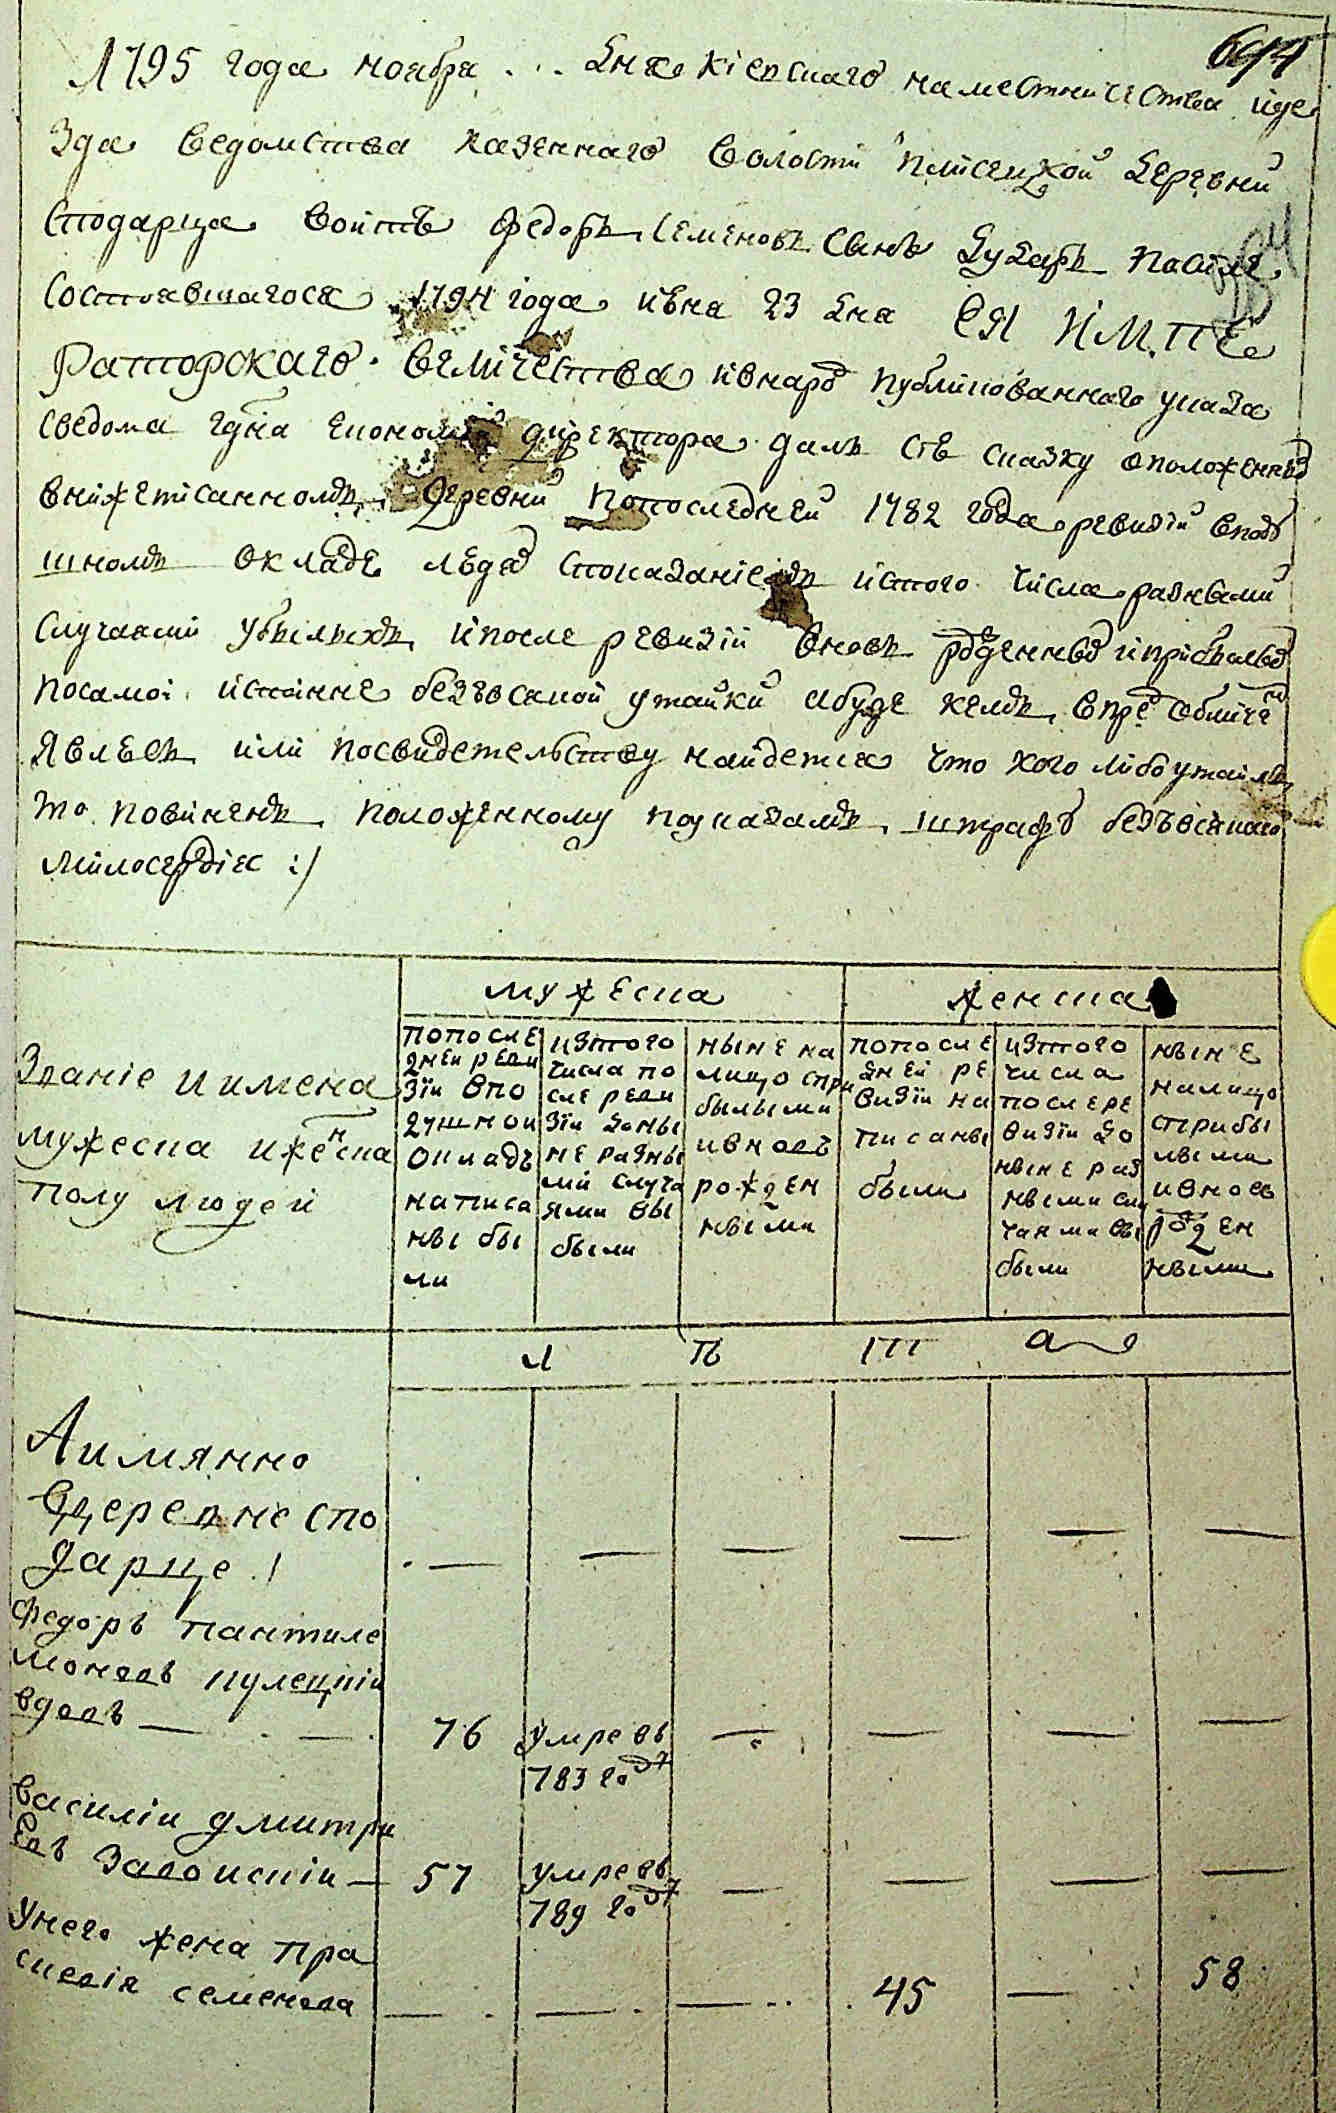 694
1795 года ноября ... дня киевскаго наместничества уе
зда ведомства казеннаго волости плисецкой деревни
Сподарца войтъ Федоръ Семеновъ сынъ после
состоявшагося 1794 года июня 23 дня ЕЯ ИМПЕ
РАТОРСКАГО величества и внарод публикованнаго указа
сведома гдна економии директора далъ сию сказку оположенных
внижеписанномъ деревни попоследней 1782 года ревизии вподу
шномъ окладе людех споказаниемъ истого числа разными
случаями убылыхъ и после ревизии вновь рожденных и прибылых
посамой истинне безъвсякой утайки абуде кемъ впред обличе
явлюсь или посвидетельству найдется что кого либо утаилъ
то повиненъ положенному поуказамъ штрафу безъвсякаго
милосердия :/
мужеска
женска
Звание и имена
мужеска и женска
полу людей
попосле
дней реви
зии впо
душном
окладъ
написа
ны бы
ли
изтого
числа по
сле реви
зии доны
не разны
ми случа
ями вы
были
ныне на
лицо спри
былыми
и вновь
рожден
ными
попосле
дней ре
визии на
писаны
были
изтого
числа
послере
визии до
ныне раз
ными слу
чаями вы
были
ныне
налицо
сприбы
лыми
ивновь
рожден
ными
Л ѣ т а
Аимянно
вдеревне Спо
дарце !
Федоръ пантиле
моновъ кулецкий
вдовъ — — 76 умре въ
783 году — — — —
василии дмитри
евъ завоиский — 57 умре въ
789 году — — — —
Унего жена пра
сковия семенова — — — 45 — 58